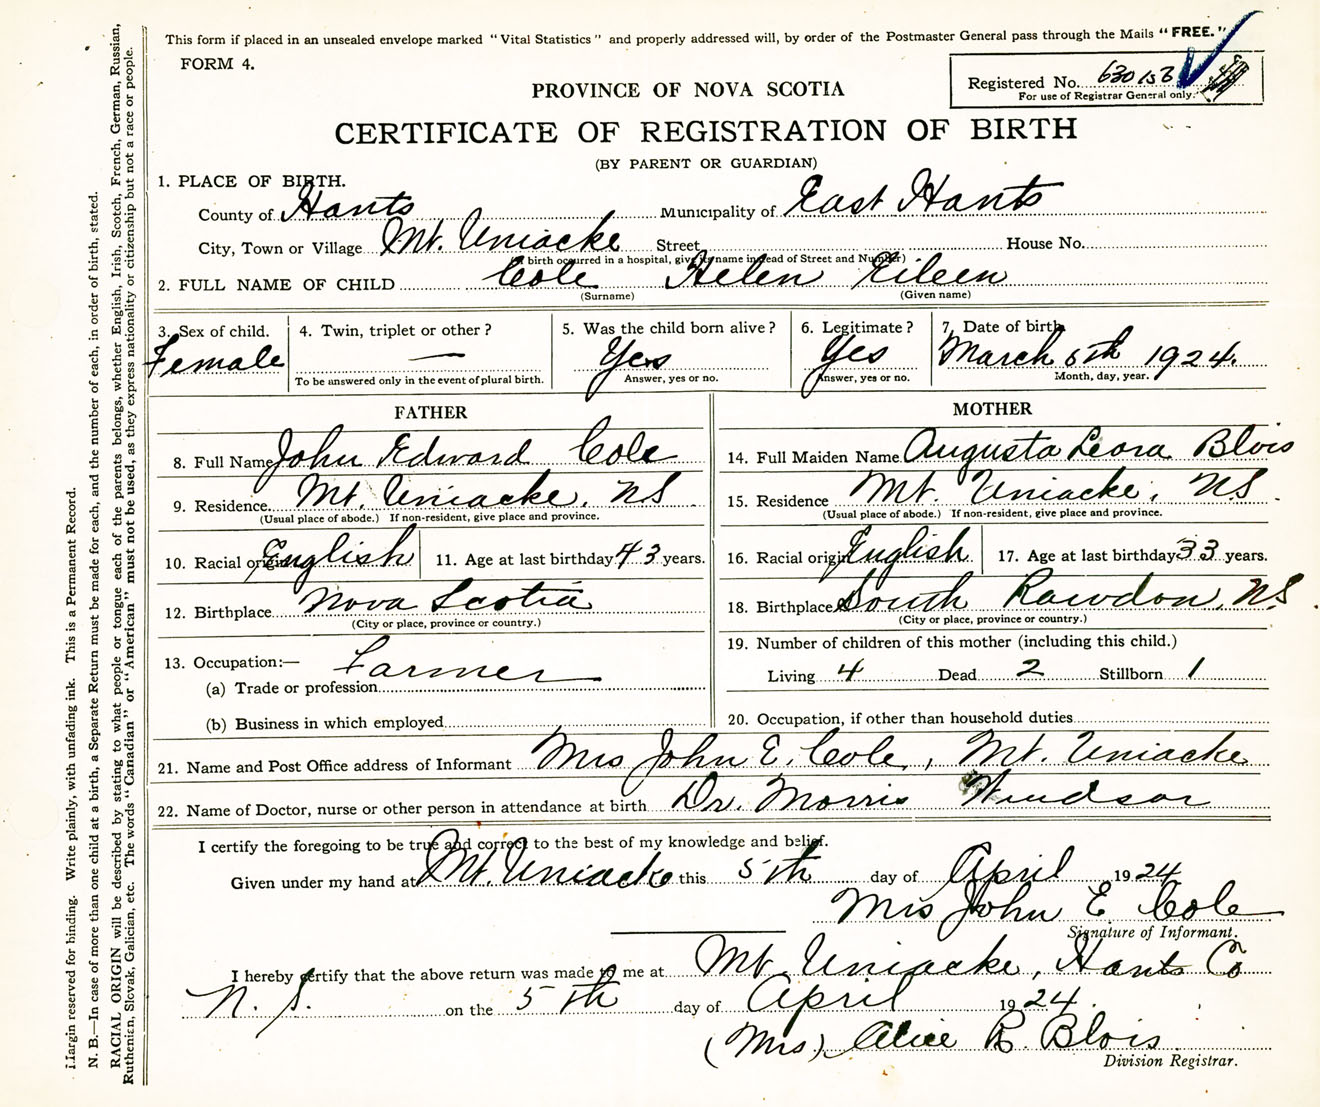 This form if placed in an unsealed envelope marked "Vital Statistics" and properly addressed will, by order of the Postmaster General pass through the Mails "FREE."
FORM 4.
Registered No. 630153
For use of Registrar General only.
PROVINCE OF NOVA SCOTIA
CERTIFICATE OF REGISTRATION OF BIRTH
(BY PARENT OR GUARDIAN)
1. PLACE OF BIRTH.
County of Hants Municipality of East Hants
City, Town or Village Mt. Uniacke Street House No.
(If birth occurred in a hospital, give its name instead of Street and Number)
2. FULL NAME OF CHILD Cole Helen Eileen
(Surname) (Given name)
3. Sex of child. 4. Twin, triplet or other? 5. Was the child born alive? 6. Legitimate? 7. Date of birth
Female — Yes Yes March 5th 1924.
To be answered only in the event of plural birth. Answer, yes or no. Answer, yes or no. Month, day, year.
FATHER
8. Full Name John Edward Cole
9. Residence. Mt. Uniacke, NS
(Usual place of abode.) If non-resident, give place and province.
10. Racial origin English 11. Age at last birthday 43 years.
12. Birthplace Nova Scotia
(City or place, province or country.)
13. Occupation:— Farmer
(a) Trade or profession
(b) Business in which employed
MOTHER
14. Full Maiden Name Augusta Leora Blois
15. Residence Mt. Uniacke, NS.
(Usual place of abode.) If non-resident, give place and province.
16. Racial origin English 17. Age at last birthday 33 years.
18. Birthplace South Rawdon, N.S.
(City or place, province or country.)
19. Number of children of this mother (including this child.)
Living 4 Dead 2 Stillborn 1
20. Occupation, if other than household duties
21. Name and Post Office address of Informant Mrs John E. Cole, Mt. Uniacke
22. Name of Doctor, nurse or other person in attendance at birth Dr. Morris Windsor
I certify the foregoing to be true and correct to the best of my knowledge and belief.
Given under my hand at Mt. Uniacke this 5th day of April 1924
Mrs John E Cole
Signature of Informant.
I hereby certify that the above return was made to me at Mt Uniacke, Hants Co
N. S. on the 5th day of April 1924.
(Mrs) Alice R. Blois
Division Registrar.
Margin reserved for binding. Write plainly, with unfading ink. This is a Permanent Record.
N. B.—In case of more than one child at a birth, a Separate Return must be made for each, and the number of each, in order of birth, stated.
RACIAL ORIGIN will be described by stating to what people or tongue each of the parents belongs, whether English, Irish, Scotch, French, German, Russian,
Ruthenian, Slovak, Galician, etc. The words "Canadian" or "American" must not be used, as they express nationality or citizenship but not a race or people.